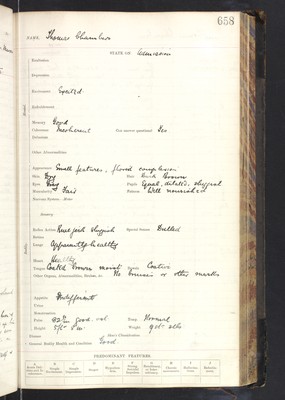 658
NAME. Thomas Chambers
STATE ON Admission
Exaltation
Depression
Excitement Excited.
Enfeeblement
Memory Good
Coherence Incoherent Can answer questions? Yes
Delusions
Other Abnormalities
Appearance Small features, florid complexion
Skin Dry Hair Dark Brown
Eyes Grey Pupils Equal, dilated, sluggish
Muscularity Fair Fatness Well nourished
Nervous System.—Motor
Sensory
Reflex Action Knee jerk sluggish Special Senses Dulled
Retinæ
Lungs Apparently healthy
Heart Healthy
Tongue Coated brown moist Costive
Other Organs, Abnormalities, Bruises, &c. No bruises or other marks
Appetite Indifferent
Urine
Menstruation
Pulse Temp. Normal
Height Weight
Disease
General Bodily Health and Condition Good
PREDOMINANT FEATURES.